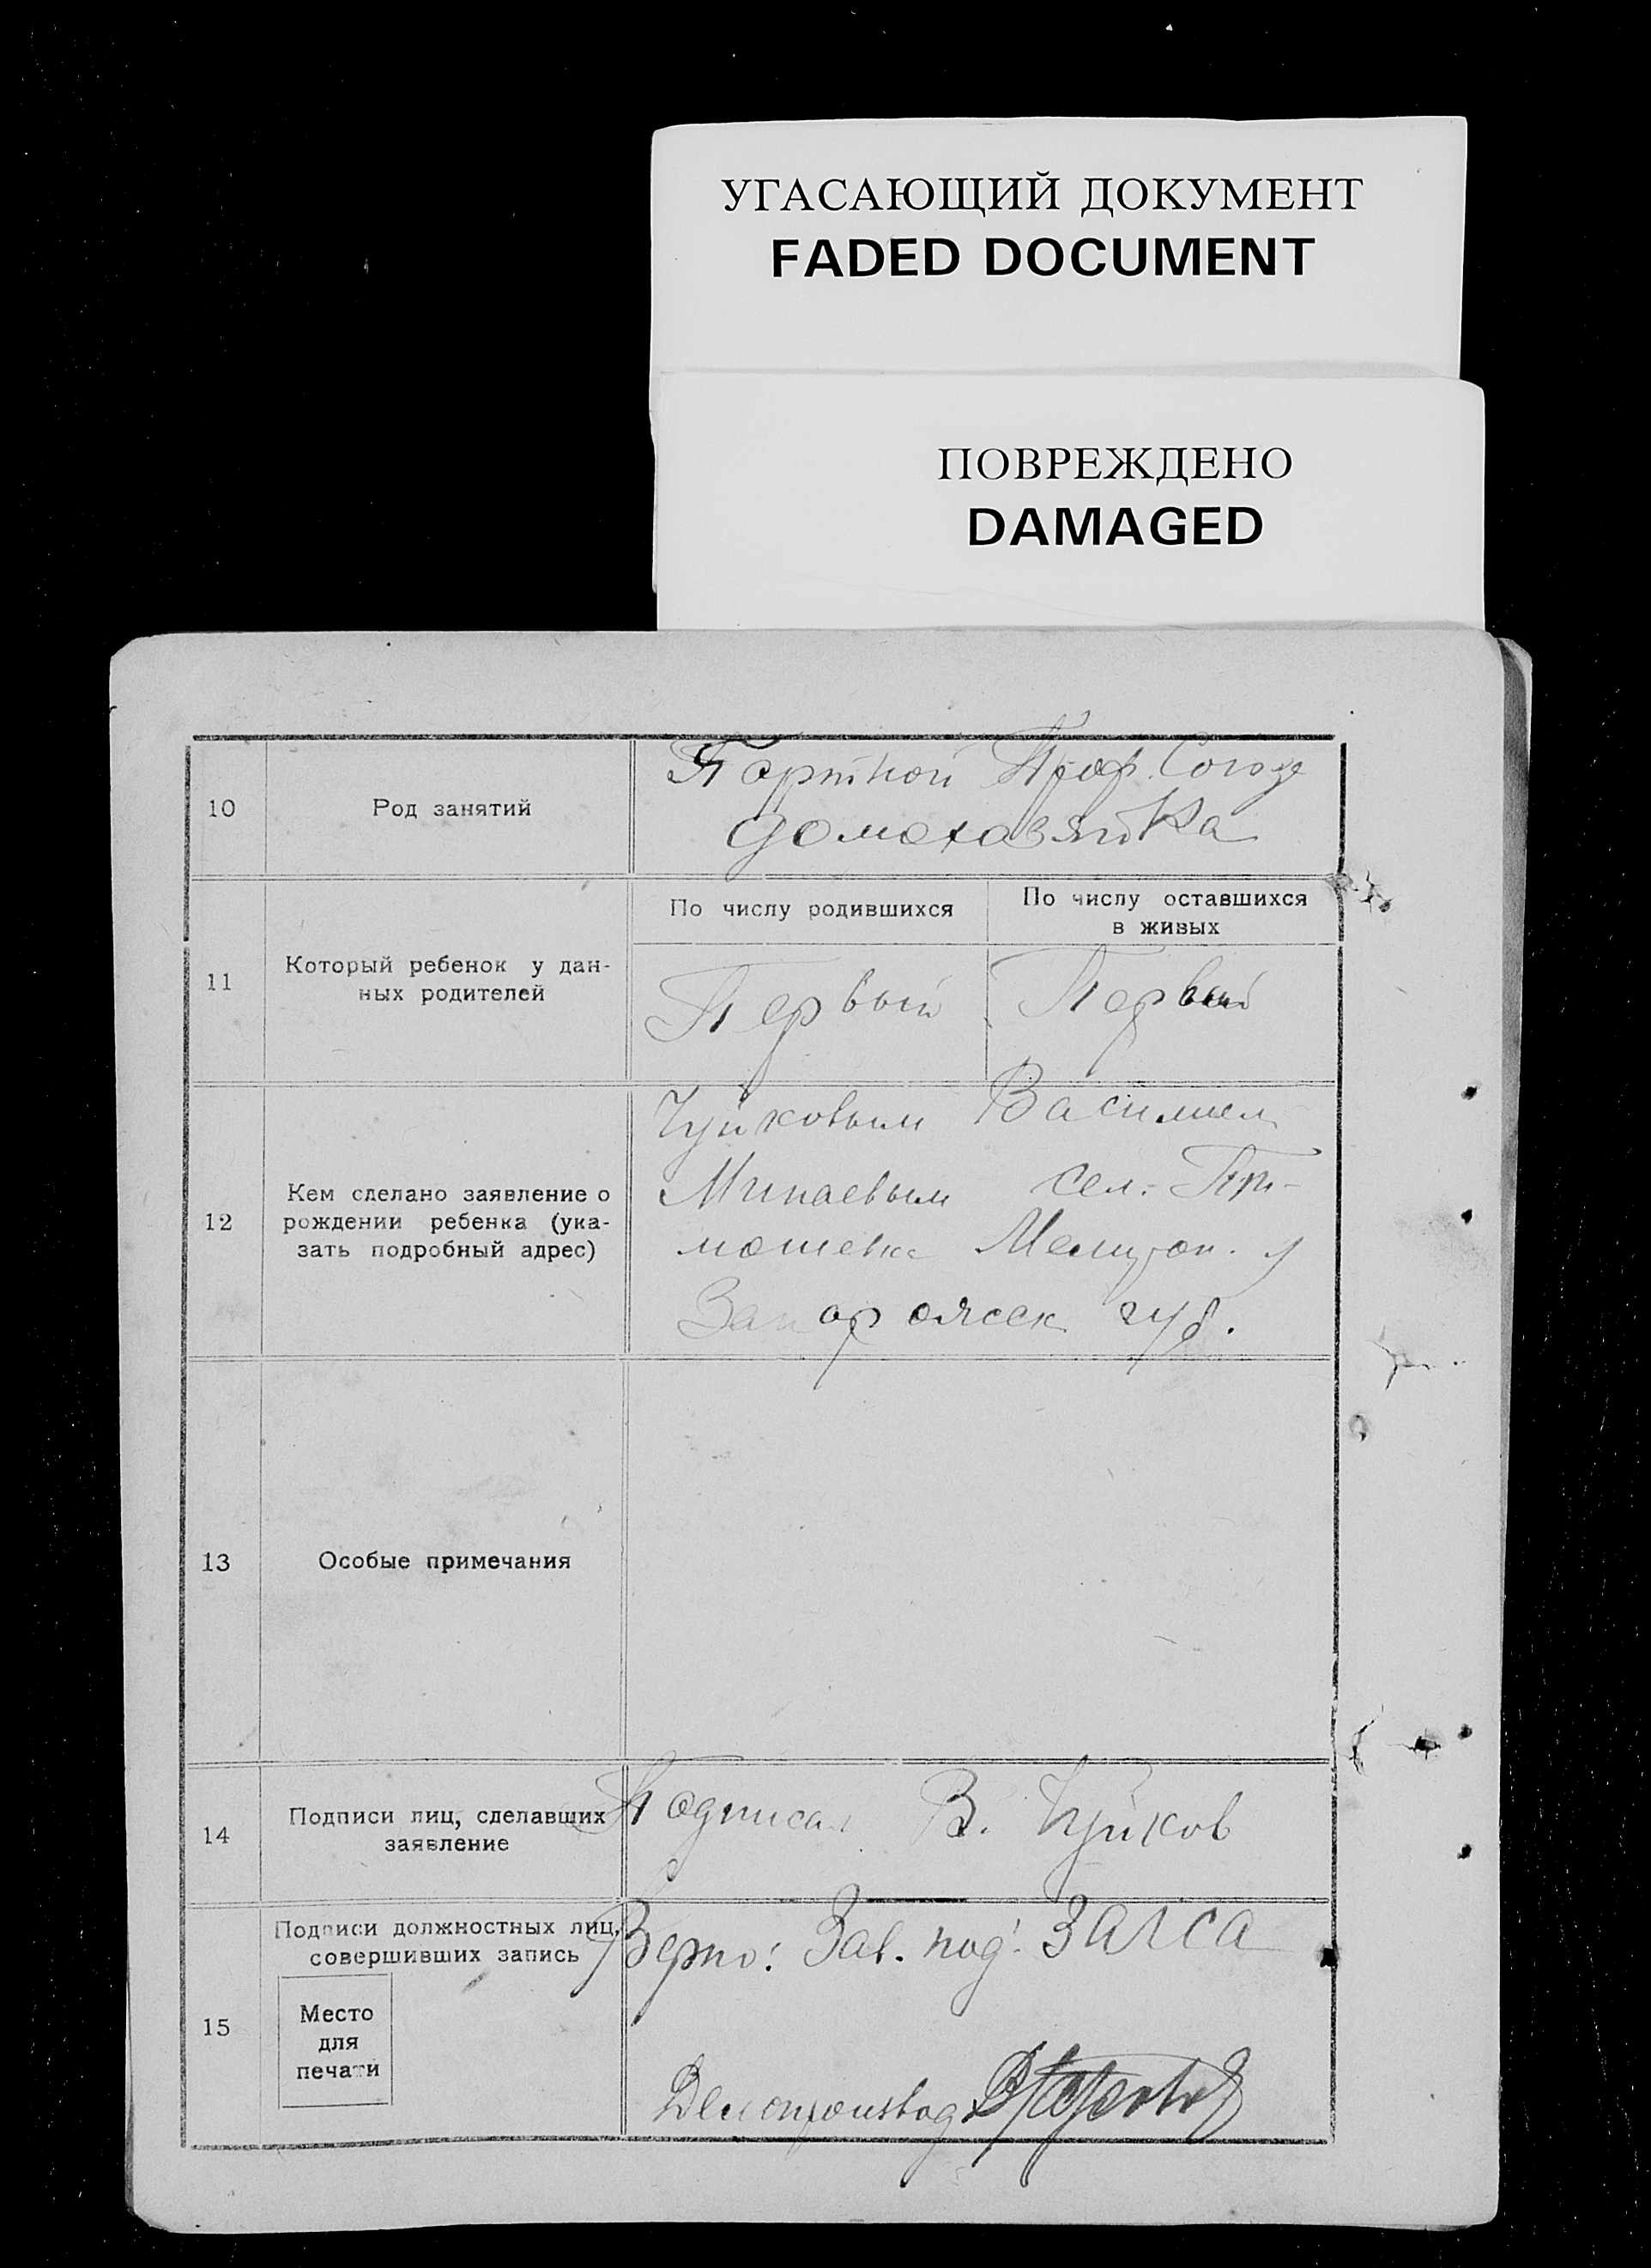 УГАСАЮЩИЙ ДОКУМЕНТ
FADED DOCUMENT
ПОВРЕЖДЕНО
DAMAGED
10
Род занятий
Портной Проф. Союз
домохозяйка
11
Который ребенок у дан-
ных родителей
По числу родившихся
По числу оставшихся
в живых
Первый
Первый
12
Кем сделано заявление о
рождении ребенка (ука-
зать подробный адрес)
Чуйковым Василием
Минаевым сел.
Мелитоп. у
Запорожск губ.
13
Особые примечания
14
Подписи лиц, сделавших
заявление
Подписал В. Чуйков
15
Подписи должностных лиц,
совершивших запись
Место
для
печати
Верно: Зав. под. ЗАГСА